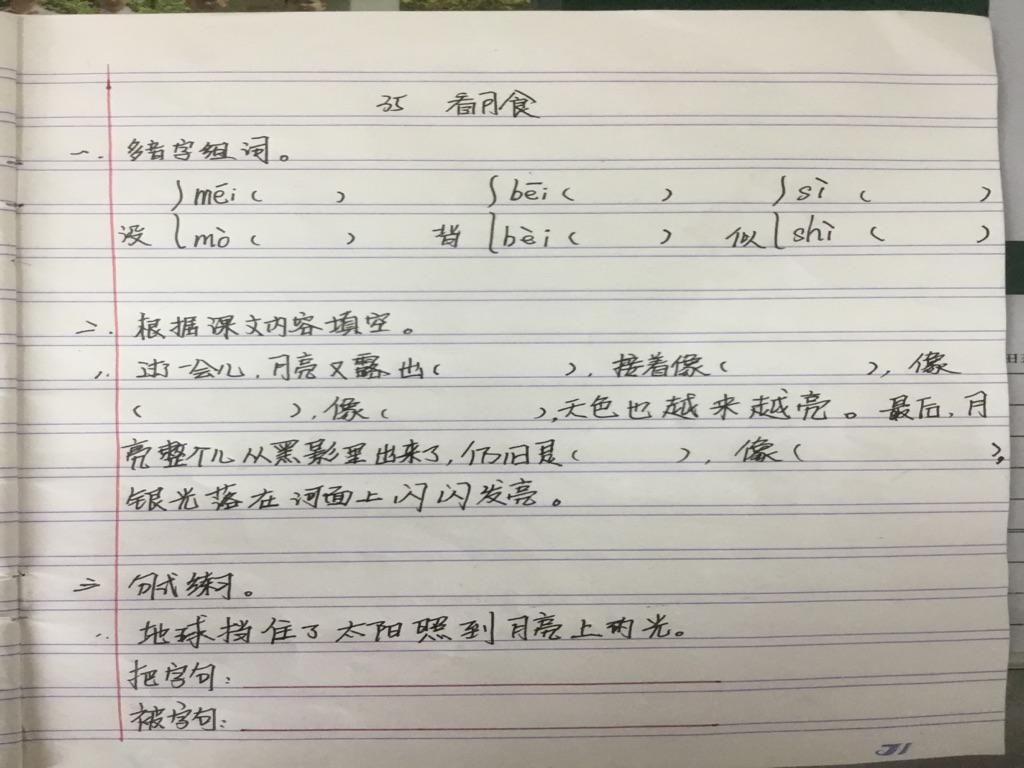 35 看月食
一. 多音字组词。
{ méi ( ) { bēi ( ) { sì ( )
没 { mò ( ) 背 { bèi ( ) 似 { shì ( )
二. 根据课文内容填空。
1. 过了一会儿,月亮又露出( ),接着像( ),像
( ),像( ),天色也越来越亮。最后,月
亮整个儿从黑影里出来了,仍旧是( ),像( ),
银光落在河面上闪闪发亮。
三 句式练习。
1. 地球挡住了太阳照到月亮上的光。
把字句:
被字句: